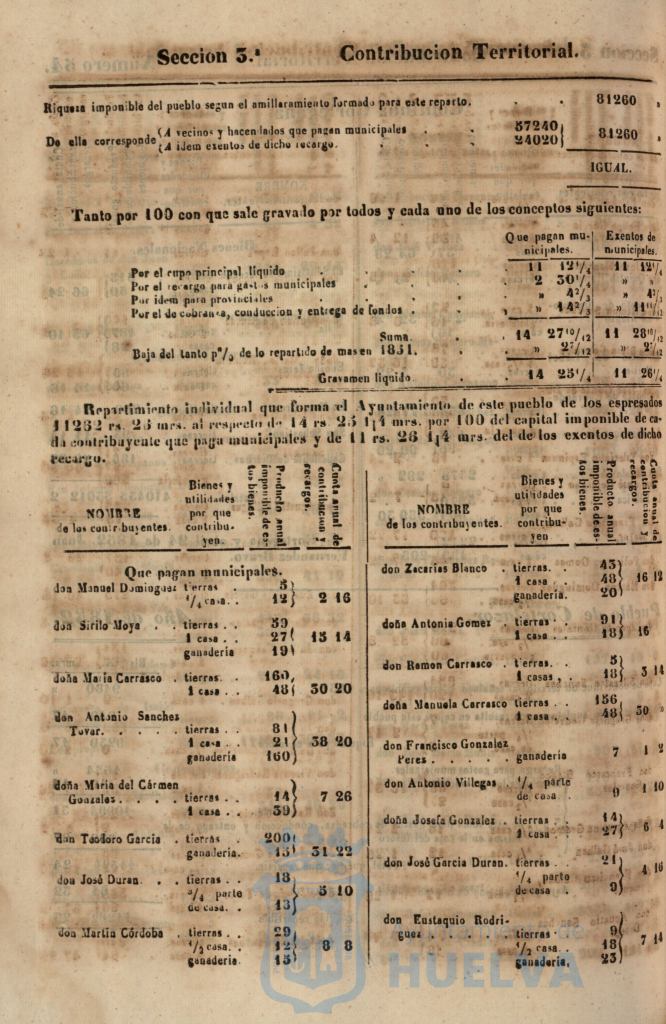 Seccion 3.ª Contribucion Territorial.
Riqueza imponible del pueblo segun el amillaramiento formado para este reparto. . . 81260 »
De ella corresponde (A vecinos y hacendados que pagan municipales . . 57240) 81260 »
(A idem exentos de dicho recargo. . . . 24020)
IGUAL.
Tanto por 100 con que sale gravado por todos y cada uno de los conceptos siguientes:
Que pagan municipales. Exentos de municipales.
Por el cupo principal liquido . . . . 11 12¹/₄ 11 12¹/₄
Por el recargo para gastos municipales . . . 2 30¹/₄ » »
Por idem para provinciales . . . . » 4²/₃ » 4²/₃
Por el de cobranza, conduccion y entrega de fondos . . » 14²/₃ » 11¹¹/₁₂
Suma. . 14 27¹⁰/₁₂ 11 28¹⁰/₁₂
Baja del tanto p⁰/₀ de lo repartido de mas en 1851. . » 2⁷/₁₂ » 2⁷/₁₂
Gravamen liquido. . . 14 25¹/₄ 11 26¹/₄
Repartimiento individual que forma el Ayuntamiento de este pueblo de los espresados
11282 rs. 23 mrs. al respecto de 14 rs 25 1¡4 mrs. por 100 del capital imponible de ca-
da contribuyente que paga municipales y de 11 rs. 26 1¡4 mrs. del de los exentos de dicho
recargo.
NOMBRE
de los contribuyentes.
Bienes y
utilidades
por que
contribu-
yen.
Producto anual
imponible de es-
tos bienes.
Cuota anual de
contribucion y
recargos.
Que pagan municipales.
don Manuel Dominguez tierras . 5
¹/₄ casa. . 12 2 16
don Sirilo Moya . . tierras . . 59
1 casa . . 27 15 14
ganaderia 19
doña Maria Carrasco . tierras. . 160
1 casa . . 48 30 20
don Antonio Sanchez
Tovar. . . . . tierras . . 81
1 casa . . 21 38 20
ganaderia 160
doña Maria del Cármen
Gonzalez . . . . tierras . . 14 7 26
1 casa . . 39
don Teodoro Garcia . tierras . 200
ganaderia. 15 31 22
don José Duran. . . tierras . . 18
³/₄ parte 5 10
de casa. . 13
don Martin Córdoba . tierras . . 29
¹/₂ casa. . 12 8 8
ganaderia. 15
NOMBRE
de los contribuyentes.
Bienes y
utilidades
por que
contribu-
yen
Producto anual
imponible de es-
tos bienes.
Cuota anual de
contribucion y
recargos.
don Zacarias Blanco . tierras. . 45
1 casa . . 48 16 12
ganaderia. 20
doña Antonia Gomez . tierras . . 91
1 casa . . 18 16
don Ramon Carrasco . tierras. . 5
1 casas . . 18 3 14
doña Manuela Carrasco tierras . . 156
1 casa . . 48 30 »
don Francisco Gonzalez
Perez . . . . . ganaderia 7 1 2
don Antonio Villegas . ¹/₄ parte
de casa . 9 1 10
doña Josefa Gonzalez . tierras . . 14
1 casa . . 27 6 4
don José Garcia Duran. tierras . . 21
¹/₄ parte 4 16
de casa . 9
don Eustaquio Rodri-
guez . . . . . tierras . . 9
¹/₂ casa. . 18 7 14
ganaderia. 23
HUELVA